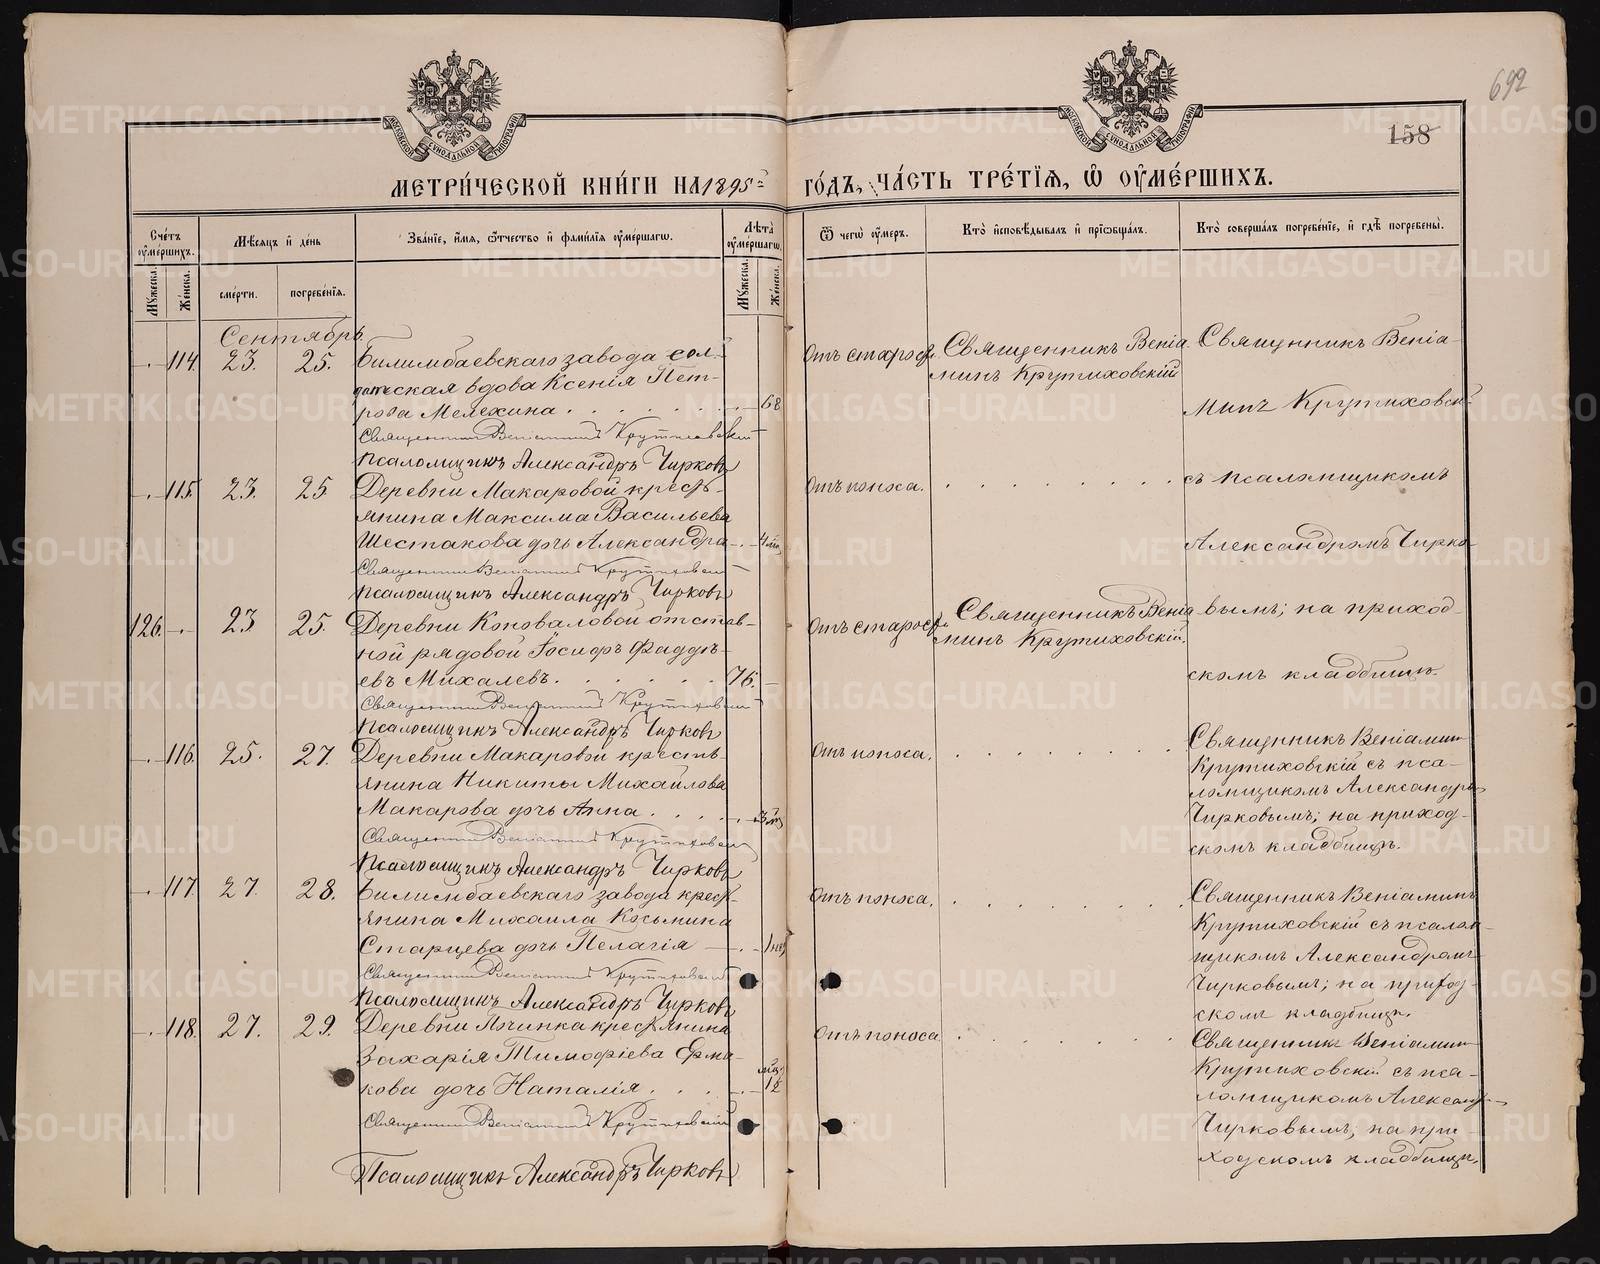 692
158
МОСКОВСКОЙ СѴНОДАЛЬНОЙ ТИПОГРАФІИ
МОСКОВСКОЙ СѴНОДАЛЬНОЙ ТИПОГРАФІИ
МЕТРИ́ЧЕСКОЙ КНИ́ГИ НА 1895й ГО́ДЪ, ЧА́СТЬ ТРЕ́ТІѦ, Ѽ ОУ҆МЕ́РШИХЪ.
Сче́тъ оу҆ме́ршихъ.
Мꙋжеска.
Же́нска.
Мѣ́сѧцъ и҆ де́нь
сме́рти.
погребе́нїѧ.
Зва́нїе, и҆́мѧ, ѻ҆́тчество и҆ фамилїѧ оу҆ме́ршагѡ.
Лѣ́та оу҆ме́ршагѡ.
Мꙋ́жеска.
Же́нска.
Ѿ чегѡ̀ оу҆́меръ.
Кто̀ и҆сповѣ́дывалъ и҆ прїѡбща́лъ.
Кто̀ соверша́лъ погребе́нїе, и҆ гдѣ̀ погребены̀.
Сентябрь
114. 23. 25. Билимбаевскаго завода сол-
датская вдова Ксенія Пет-
рова Мелехина . . . . . . 68
Священникъ Веніаминъ Крутиховскій
Псаломщикъ Александръ Чирковъ
Отъ старости
Священникъ Веніа
минъ Крутиховскій
Священникъ Веніа-
минъ Крутиховскій
115. 23. 25 Деревни Макаровой кресть-
янина Максима Васильева
Шестакова дочь Александра 4 мѣс
Священникъ Веніаминъ Крутиховскій
Псаломщикъ Александръ Чирковъ
Отъ поноса.
съ псаломщикомъ
Александромъ Чирко-
126. 23 25. Деревни Коноваловой отстав-
ной рядовой Іосифъ Фаддѣ-
евъ Михалевъ . . . . . . 76.
Священникъ Веніаминъ Крутиховскій
Псаломщикъ Александръ Чирковъ
Отъ старости
Священникъ Веніа
минъ Крутиховскій.
вымъ; на приход-
скомъ кладбищѣ
116. 25. 27. Деревни Макаровой кресть-
янина Никиты Михайлова
Макарова дочь Анна . . . . 3 м
Священникъ Веніаминъ Крутиховскій
Псаломщикъ Александръ Чирковъ
Отъ поноса.
Священникъ Веніаминъ
Крутиховскій съ пса-
ломщикомъ Александромъ
Чирковымъ; на приход-
скомъ кладбищѣ.
117. 27. 28. Билимбаевскаго завода крест-
янина Михаила Косьмина
Старцева дочь Пелагія 1 нед
Священникъ Веніаминъ Крутиховскій
Псаломщикъ Александръ Чирковъ
Отъ поноса.
Священникъ Веніаминъ
Крутиховскій съ псалом-
щикомъ Александромъ
Чирковымъ; на приход-
скомъ кладбищѣ.
118. 27. 29. Деревни Починка крестьянина
Захарія Тимофіева Ерма-
кова дочь Наталія . . . мѣс
Священникъ Веніаминъ Крутиховскій
Псаломщикъ Александръ Чирковъ
Отъ поноса
Священникъ Веніаминъ
Крутиховскій съ пса-
ломщикомъ Александ-
Чирковымъ; на при
ходскомъ кладбищѣ.
METRIKI.GASO-URAL.RU